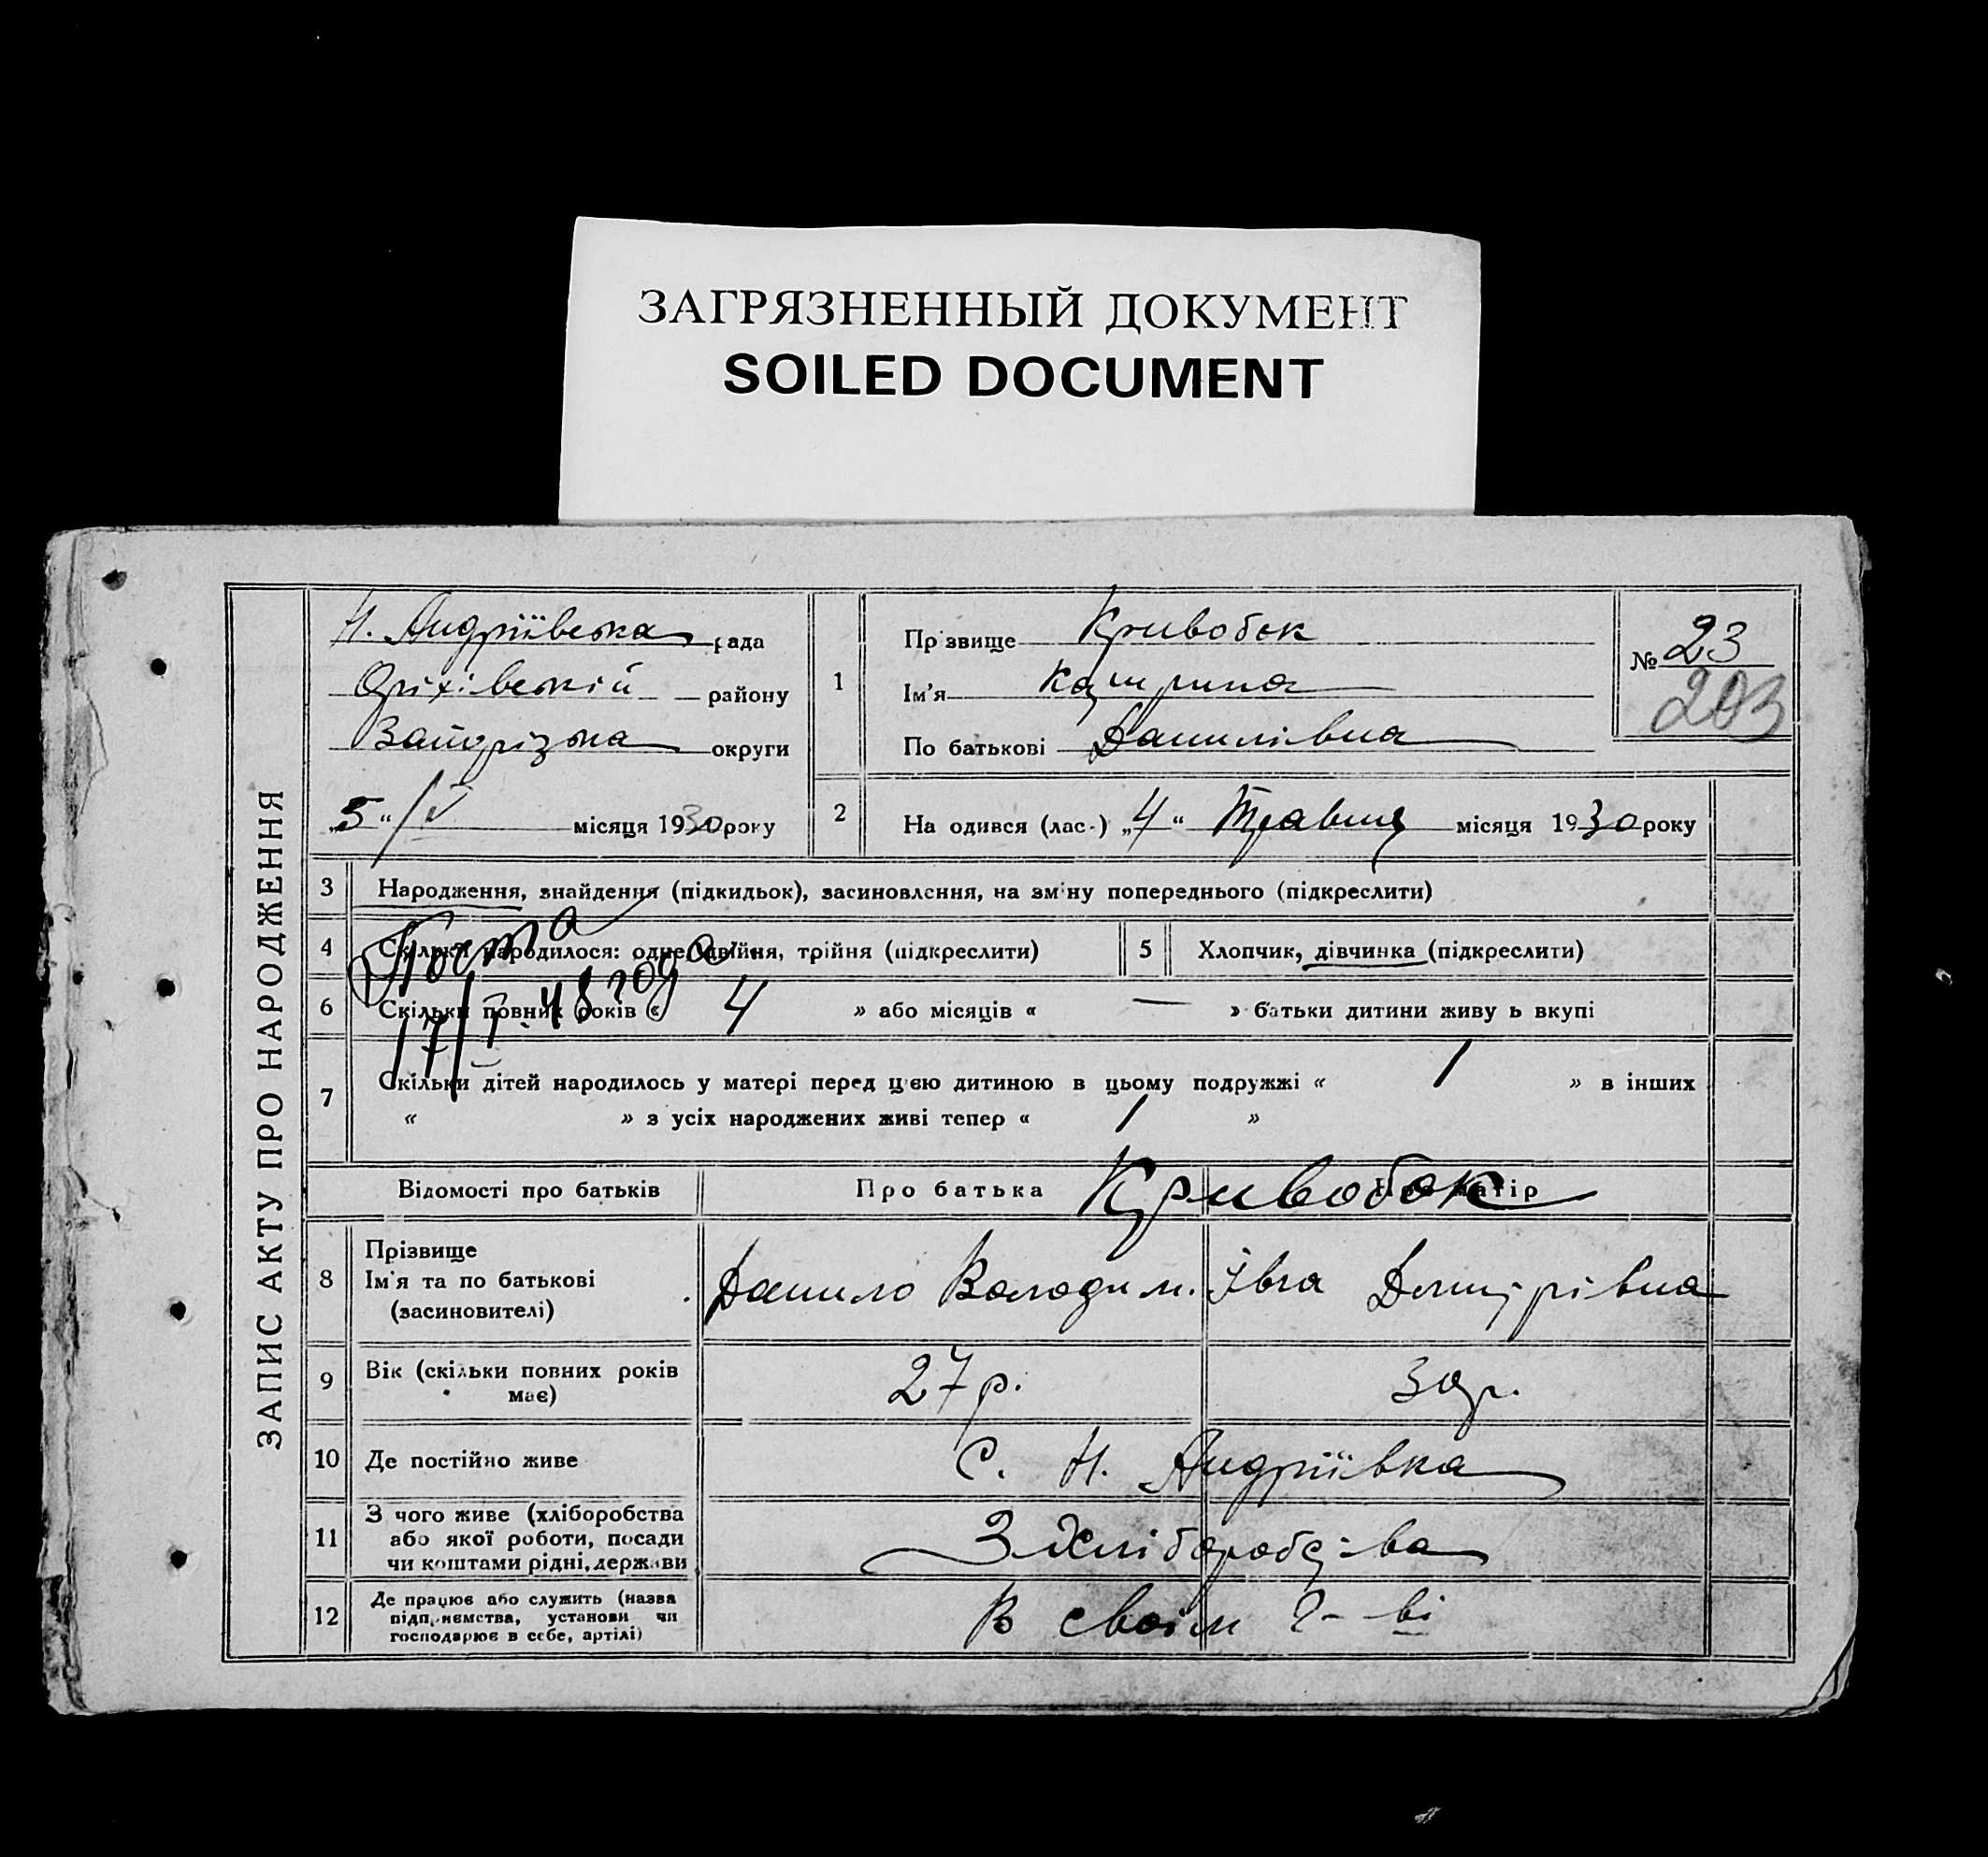 ЗАГРЯЗНЕННЫЙ ДОКУМЕНТ
SOILED DOCUMENT
ЗАПИС АКТУ ПРО НАРОДЖЕННЯ
Н. Андріївська рада
Оріхівський району
Запорізька округи
„5“ /V місяця 1930 року
1
Прізвище Кривобок
Ім'я Катрина
По батькові Данилівна
№ 23
203
2 На одився (лас-) „4“ Травня місяця 1930 року
3 Народження, знайдення (підкидьок), засиновлення, на зміну попереднього (підкреслити)
4 Скільки народилося: одне, двійня, трійня (підкреслити)
5 Хлопчик, дівчинка (підкреслити)
6 Скільки повних років « 4 » або місяців « — » батьки дитини живуть вкупі
17/V 48 года
7 Скільки дітей народилось у матері перед цією дитиною в цьому подружжі « 1 » в інших
« » з усіх народжених живі тепер « 1 »
Відомості про батьків
Про батька
Про матір
Кривобок
8 Прізвище
Ім'я та по батькові
(засиновителі)
Данило Володим. Івга Дмитрівна
9 Вік (скільки повних років
має)
27 р. 30 р.
10 Де постійно живе
С. Н. Андріївка
11 З чого живе (хліборобства
або якої роботи, посади
чи коштами рідні, держави
З Хліборобства
12 Де працює або служить (назва
підприємства, установи чи
господарює в себе, артілі)
В своїм г-ві